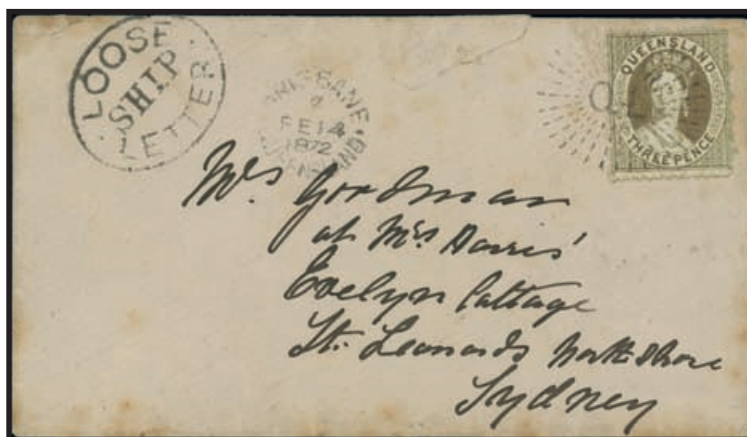 LOOSE
SHIP
LETTER
BRISBANE
FE 14
1872
QUEENSLAND
Q
QUEENSLAND
THREE PENCE
Mrs Goodman
at Mrs
Evelyn Cottage
St. Leonards North Shore
Sydney